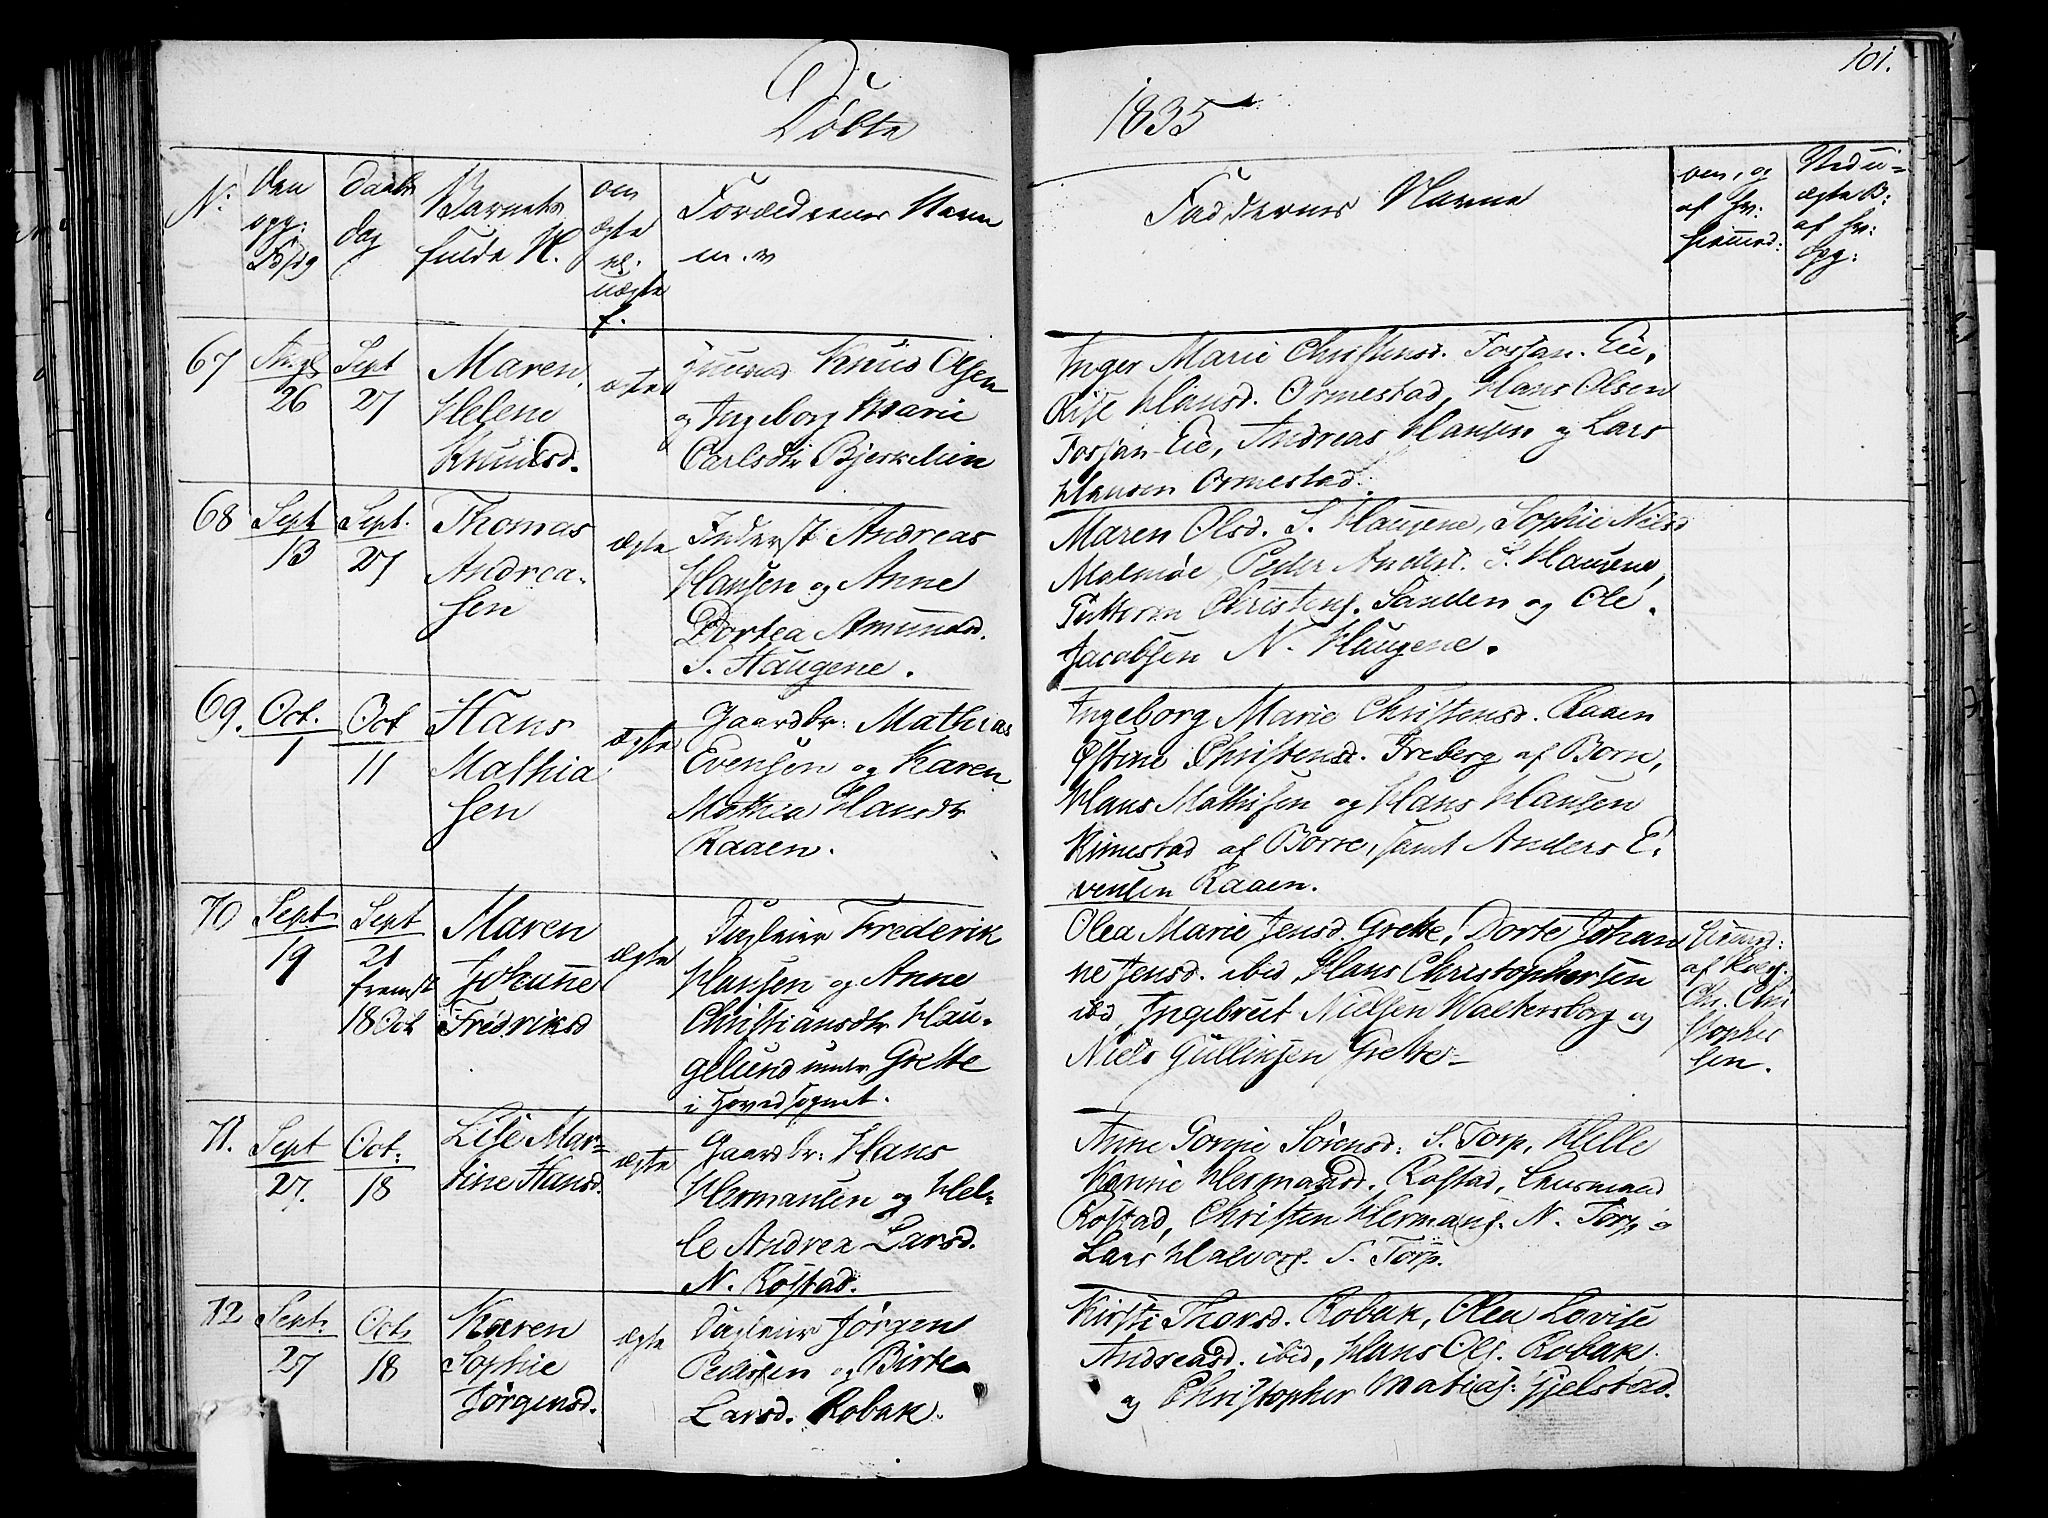 Døbte
1835
101.
N:
den
opg:
F/dg
Daabs
dag
Barnets
fulde N.
om
ægte
el.
uægte
f.
Forældrenes Navn
m. v
Faddernes Navne
om, og
af hv:
hiemmed:
Ved u-
ægte B:
af hv:
Opg:
67
Aug
26
Sept
27
Maren
Helene
Knudsd.
ægte
Knud Olsen
og Ingeborg Marie
Carlsdtr Bjerkelien
Inger Marie Christensd. Fossan-Eie,
Rise Hansd. Ormestad, Hans Olsen
Fossan-Eie, Andreas Hansen og Lars
Hansen Ormestad.
68
Sept
13
Sept.
27
Thomas
Andrea-
sen
ægte
Inderst Andreas
Hansen og Anne
Dortea Amunds.
S. Haugene.
Maren Olsd. S. Haugene, Sophie Nilsd
Malmøe, Peder Anders. S. Haugene,
Guttorm Christens. Sanden og Ole
Jacobsen N. Haugene.
69.
Oct.
1
Oct
11
Hans
Mathia
sen
ægte
Gaardbr: Mathias
Evensen og Karen
Mathea Hansdtr
Raaen.
Ingeborg Marie Christensd. Raaen
Østine Christensd. Freberg af Borre,
Hans Mathisen og Hans Hansen
Kimestad af Borre, samt Anders E-
vensen Raaen.
70
Sept
19
Sept
21
fremst
18 Oct
Maren
Johanne
Fredriksd
ægte
Dagleier Frederik
Hansen og Anne
Christiansdtr Hau-
gelund under Grette
i Hovedsognet.
Olea Marie Jensd. Grette, Dorte Johan
ne Jensd. ibid, Hans Christophersen
ibd, Ingebret Nielsen Waltersborg og
Niels Gullinsen Grette-
Hiemd:
af
Ch. Chri
stopher
sen.
71.
Sept
27.
Oct:
18
Lise Mar-
tine Hansd.
ægte
Gaardbr: Hans
Hermansen og Hel-
le Andrea Larsd.
N. Rostad.
Anne Gorine Sørensd: S. Torp, Helle
Karine Hermansd. Rostad,
Rostad, Christen Hermans. N. Torp o
Lars Halvors. S. Torp.
72
Sept.
27
Oct.
18
Karen
Sophie
Jørgensd.
ægte
Dagleier Jørgen
Pedersen og Birte
Larsd. Robak.
Kirsti Thorsd. Robak, Olea Lovise
Andreasd. ibid, Hans Ols. Robak
og Christopher Matias: Gjelstad.